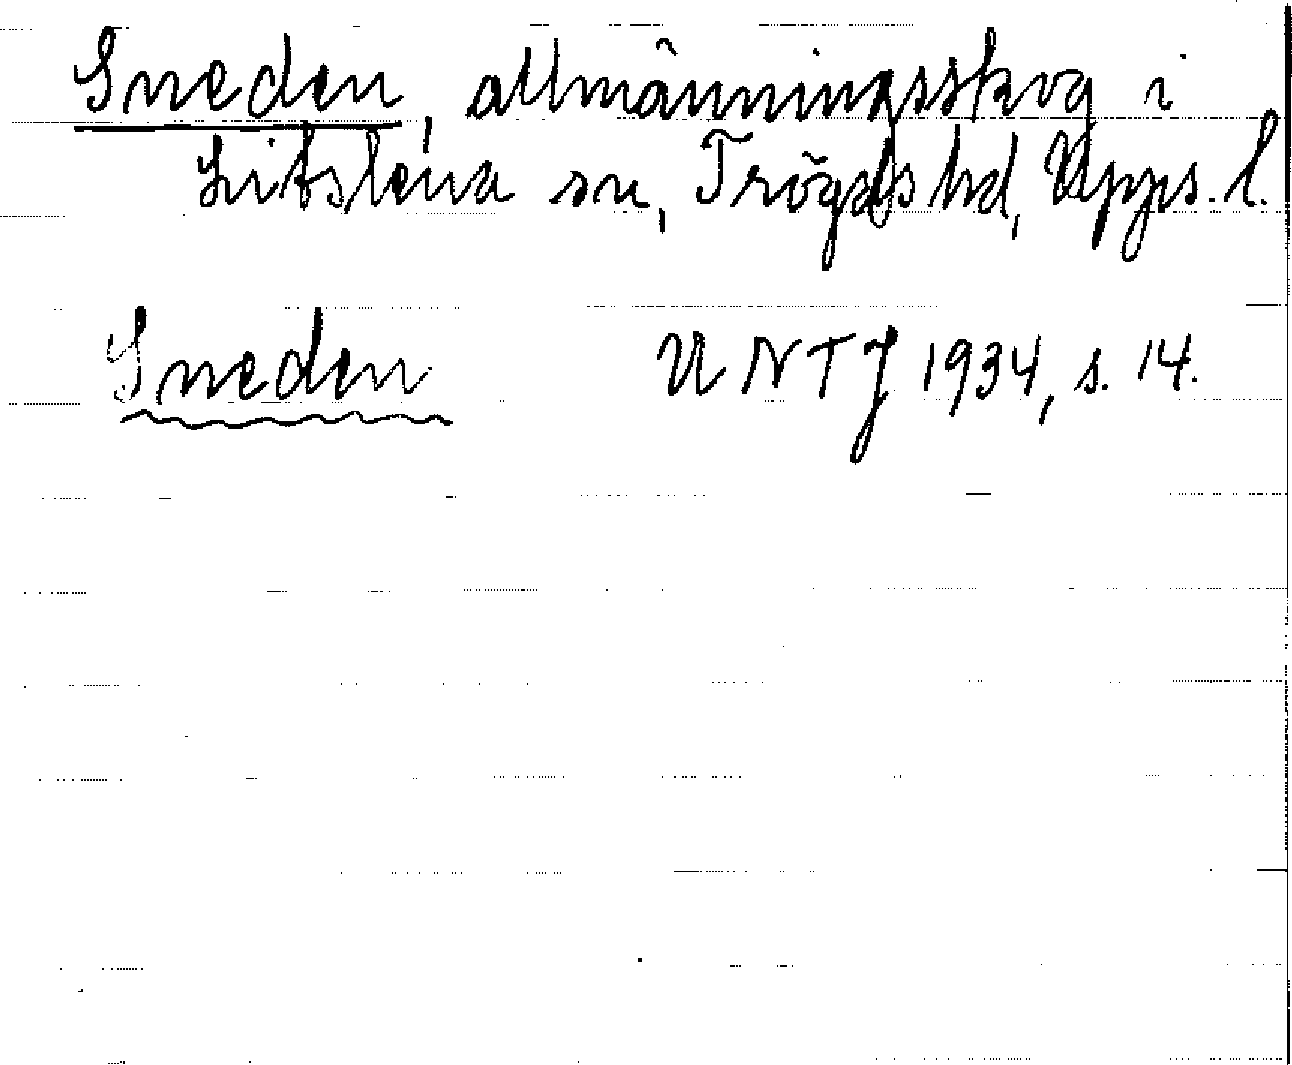 Sneden, allmänningsskog i
Litslena sn, Trögds hd, Upps. l.
Sneden UNTJ 1934, s. 14.